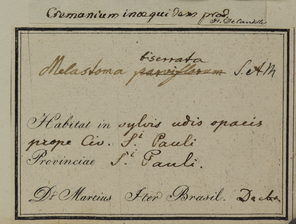 Cremanium inaequidens
biserrata
Melastoma parviflorum S. & M
Habitat in sylvis udis opacis
prope Civ. Sⁱ Pauli
Provinciae Sⁱ Pauli.
Dʳ Martius Iter Brasil.